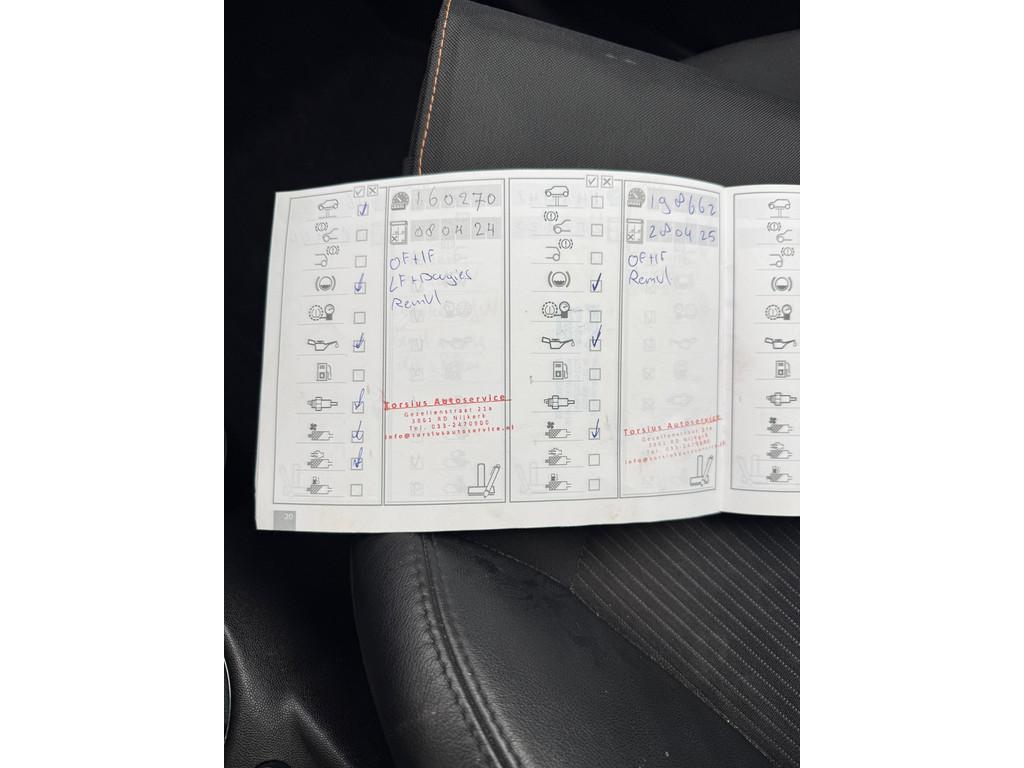 160270
080424
OF+IF
LF+Bougies
Remvl
Torsius Autoservice
Gezellenstraat 21a
3861 RD Nijkerk
Tel. 033-2470800
info@torsiusautoservice.nl
20
198662
280425
OF+IF
Remvl
Torsius Autoservice
Gezellenstraat 21a
3861 RD Nijkerk
Tel. 033-2470800
info@torsiusautoservice.nl